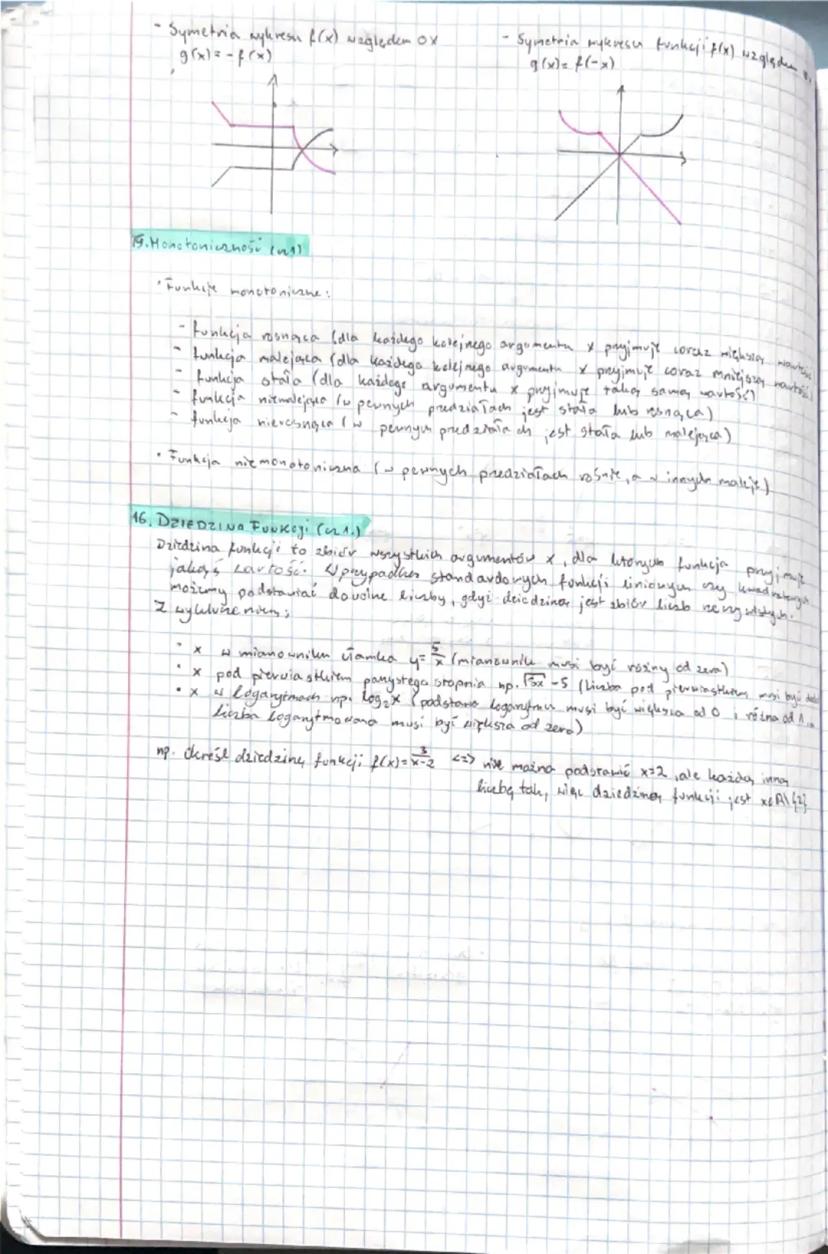 - Symetria wykresu f(x) względem OX
g(x) = - f(x)
- Symetria wykresu funkcji f(x) względem
g(x) = f(-x)
15. Monotoniczność (cz1)
• Funkcje monotoniczne:
- funkcja rosnąca (dla każdego kolejnego argumentu x przyjmuje coraz większą wartość)
- funkcja malejąca (dla każdego kolejnego argumentu x przyjmuje coraz mniejszą wartość)
- funkcja stała (dla każdego argumentu x przyjmuje taką samą wartość)
- funkcja niemalejąca (w pewnych przedziałach jest stała lub rosnąca)
- funkcja nierosnąca (w pewnych przedziałach jest stała lub malejąca)
• Funkcja niemonotoniczna (w pewnych przedziałach rośnie, a w innych maleje)
16. DZIEDZINA FUNKCJI (cz1.)
Dziedzina funkcji to zbiór wszystkich argumentów x, dla których funkcja przyjmuje
jakąś wartość. W przypadku standardowych funkcji liniowych czy kwadratowych
możemy podstawiać dowolne liczby, gdyż dziedziną jest zbiór liczb rzeczywistych.
Z wykluczeniem:
• x w mianowniku ułamka y= 5/x (mianownik musi być różny od zera)
• x pod pierwiastkiem parzystego stopnia np. √3x -5 (liczba pod pierwiastkiem musi być
• x w logarytmach np. log₂x (podstawa logarytmu musi być większa od 0 i różna od 1, a
liczba logarytmowana musi być większa od zera)
np. Określ dziedzinę funkcji f(x)= 3/x-2 <=> nie można podstawić x=2, ale każdą inną
liczbę tak, więc dziedziną funkcji jest x∈R\{2}